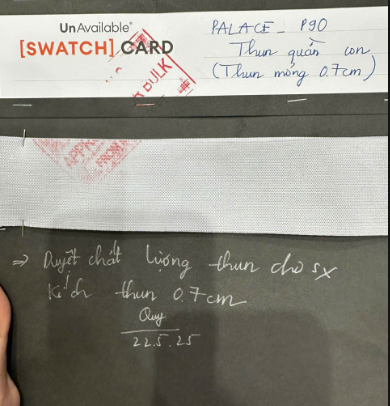 UnAvailable®
[SWATCH] CARD
BULK
PALACE - P90
Thun quần con
(Thun mỏng 0.7cm)
APPR
FROM
⇒ Duyệt chất lượng thun cho sx
Kích thun 0.7cm
Quy
22.5.25